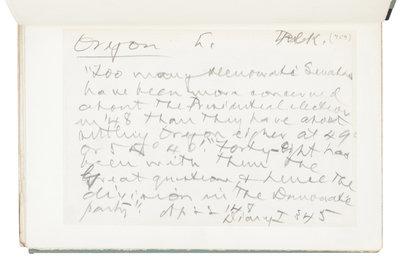 Oregon L. Polk. (704)
"Too many Democratic Senators
have been more concerned
about the Presidential election
in '48 than they have about
settling Oregon either at 49°
or 54° 40'." "Forty-eight has
been with them the
Great question & hence the
division in the Democratic
party". Ap 22 '48
Diary I 345